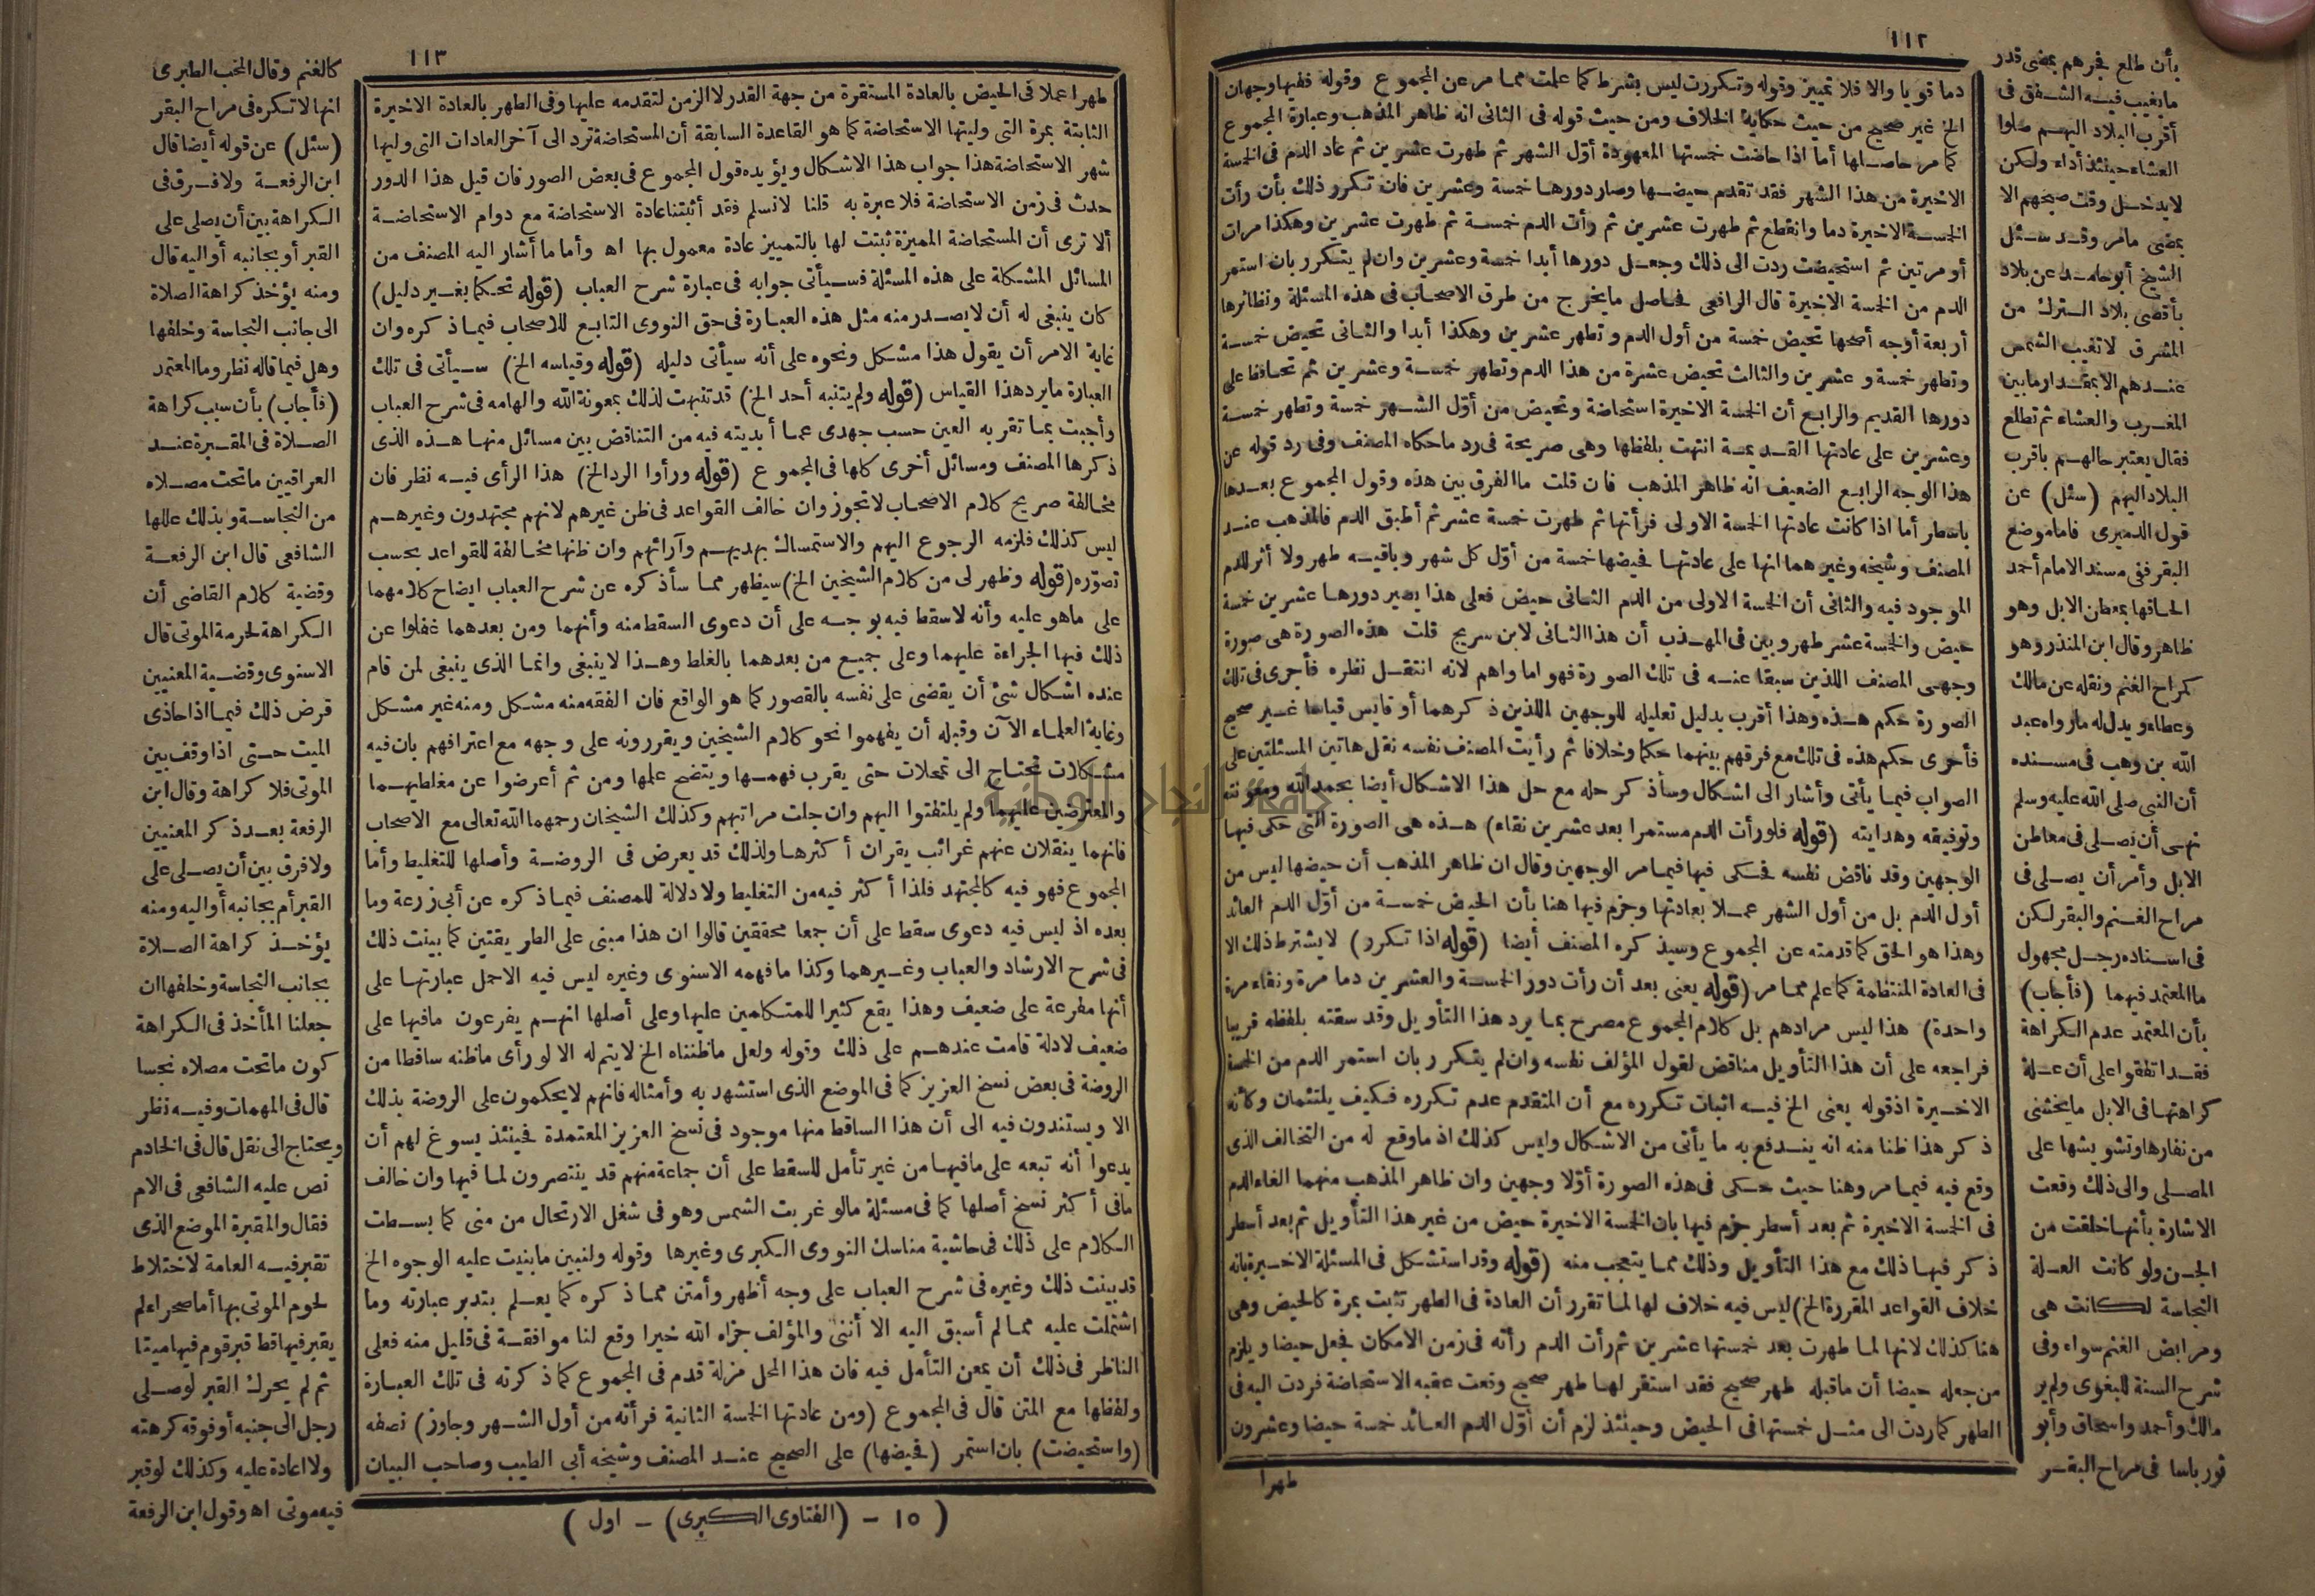 ١١٢
دما قويا والا فلا تمييز وقوله وتكررت ليس بشرط كما علمت مما مر عن المجموع وقوله ففيها وجهان
الخ غير صحيح من حيث حكاية الخلاف ومن حيث قوله فى الثانى انه ظاهر المذهب وعبارة المجموع
كما مر حاصلها أما اذا حاضت خمستها المعهودة أول الشهر ثم طهرت عشرين ثم عاد الدم فى الخمسة
الاخيرة من هذا الشهر فقد تقدم حيضها وصار دورها خمسة وعشرين فان تكرر ذلك بأن رأت
الخمسة الاخيرة دما وانقطع ثم طهرت عشرين ثم رأت الدم خمسة ثم طهرت عشرين وهكذا مرات
أو مرتين ثم استحيضت ردت الى ذلك وجعل دورها أبدا خمسة وعشرين وان لم يتكرر بان استمر
الدم من الخمسة الاخيرة قال الرافعى فحاصل ما يخرج من طرق الاصحاب فى هذه المسئلة ونظائرها
أربعة أوجه أصحها تحيض خمسة من أول الدم وتطهر عشرين وهكذا أبدا والثانى تحيض خمسة
وتطهر خمسة وعشرين والثالث تحيض عشرة من هذا الدم وتطهر خمسة وعشرين ثم تحافظ على
دورها القديم والرابع أن الخمسة الاخيرة استحاضة وتحيض من أول الشهر خمسة وتطهر خمسة
وعشرين على عادتها القديمة انتهت بلفظها وهى صريحة فى رد ما حكاه المصنف وفى رد قوله عن
هذا الوجه الرابع الضعيف انه ظاهر المذهب فان قلت ما الفرق بين هذه وقول المجموع بعدها
باسطر أما اذا كانت عادتها الخمسة الاولى فرأتها ثم طهرت خمسة عشر ثم أطبق الدم فالمذهب عند
المصنف وشيخه وغيرهما انها على عادتها فحيضها خمسة من أول كل شهر وباقيه طهر ولا أثر للدم
الموجود فيه والثانى أن الخمسة الاولى من الدم الثانى حيض فعلى هذا يصير دورها عشرين خمسة
حيض والخمسة عشر طهر وبين فى المهذب أن هذا الثانى لابن سريج قلت هذه الصورة هى صورة
وجهى المصنف اللذين سبقا عنه فى تلك الصورة فهو اما واهم لانه انتقل نظره فأجرى فى تلك
الصورة حكم هذه وهذا أقرب بدليل تعليله للوجهين اللذين ذكرهما أو قايس قياسا غير صحيح
فأجرى حكم هذه فى تلك مع فرقهم بينهما حكما وخلافا ثم رأيت المصنف نفسه نقل هاتين المسئلتين على
الصواب فيما يأتى وأشار الى اشكال وسأذكر حله مع حل هذا الاشكال أيضا بحمد الله ومعونته
وتوفيقه وهدايته (قوله فلو رأت الدم مستمرا بعد عشرين نقاء) هذه هى الصورة التى حكى فيها
الوجهين وقد ناقض نفسه فحكى فيها فيما مر الوجهين وقال ان ظاهر المذهب أن حيضها ليس من
أول الدم بل من أول الشهر عملا بعادتها وجزم فيها هنا بأن الحيض خمسة من أول الدم العائد
وهذا هو الحق كما قدمته عن المجموع وسيذكره المصنف أيضا (قوله اذا تكرر) لا يشترط ذلك الا
فى العادة المنتظمة كما علم مما مر (قوله يعنى بعد أن رأت دور الخمسة والعشرين دما مرة ونقاء مرة
واحدة) هذا ليس مرادهم بل كلام المجموع مصرح بما يرد هذا التأويل وقد سقته بلفظه قريبا
فراجعه على أن هذا التأويل مناقض لقول المؤلف نفسه وان لم يتكرر بان استمر الدم من الخمسة
الاخيرة اذ قوله يعنى الخ فيه اثبات تكرره مع أن المتقدم عدم تكرره فكيف يلتئمان وكأنه
ذكر هذا ظنا منه انه يندفع به ما يأتى من الاشكال وليس كذلك اذ ما وقع له من التخالف الذى
وقع فيه فيما مر وهنا حيث حكى فى هذه الصورة أولا وجهين وان ظاهر المذهب منهما الغاء الدم
فى الخمسة الاخيرة ثم بعد أسطر جزم فيها بان الخمسة الاخيرة حيض من غير هذا التأويل ثم بعد أسطر
ذكر فيها ذلك مع هذا التأويل وذلك مما يتعجب منه (قوله وقد استشكل فى المسئلة الاخيرة بانه
خلاف القواعد المقررة الخ) ليس فيه خلاف لها لما تقرر أن العادة فى الطهر تثبت بمرة كالحيض وهى
هنا كذلك لانها لما طهرت بعد خمستها عشرين ثم رأت الدم رأته فى زمن الامكان فجعل حيضا ويلزم
من جعله حيضا أن ما قبله طهر صحيح فقد استقر لها طهر صحيح وقعت عقبه الاستحاضة فردت اليه فى
الطهر كما ردت الى مثل خمستها فى الحيض وحينئذ لزم أن أول الدم العائد خمسة حيضا وعشرون
طهرا
بأن طلع فجرهم بمضى قدر
ما يغيب فيه الشفق فى
أقرب البلاد اليهم صلوا
العشاء حينئذ أداء ولكن
لا يدخل وقت صبحهم الا
بمضى ما مر وقد سئل
الشيخ أبو حامد عن بلاد
بأقصى بلاد الترك من
المشرق لا تغيب الشمس
عندهم الا بمقدار ما بين
المغرب والعشاء ثم تطلع
فقال يعتبر حالهم باقرب
البلاد اليهم (سئل) عن
قول الدميرى فاما موضع
البقر ففى مسند الامام أحمد
الحاقها بمعطن الابل وهو
ظاهر وقال ابن المنذر وهو
كمراح الغنم ونقله عن مالك
وعطاء ويدل له ما رواه عبد
الله بن وهب فى مسنده
أن النبى صلى الله عليه وسلم
نهى أن يصلى فى معاطن
الابل وأمر أن يصلى فى
مراح الغنم والبقر لكن
فى اسناده رجل مجهول
ما المعتمد فيهما (فأجاب)
بأن المعتمد عدم الكراهة
فقد اتفقوا على أن علة
كراهتها فى الابل ما يخشى
من نفارها وتشويشها على
المصلى والى ذلك وقعت
الاشارة بأنها خلقت من
الجن ولو كانت العلة
النجاسة لكانت هى
ومرابض الغنم سواء وفى
شرح السنة للبغوى ولم ير
مالك وأحمد واسحاق وأبو
ثور باسا فى مراح البقر
١١٣
طهرا عملا فى الحيض بالعادة المستقرة من جهة القدر لا الزمن لتقدمه عليها وفى الطهر بالعادة الاخيرة
الثابتة بمرة التى وليتها الاستحاضة كما هو القاعدة السابقة أن المستحاضة ترد الى آخر العادات التى وليها
شهر الاستحاضة هذا جواب هذا الاشكال ويؤيده قول المجموع فى بعض الصور فان قيل هذا الدور
حدث فى زمن الاستحاضة فلا عبرة به قلنا لا نسلم فقد أثبتنا عادة الاستحاضة مع دوام الاستحاضة
ألا ترى أن المستحاضة المميزة ثبتت لها بالتمييز عادة معمول بها اه وأما ما أشار اليه المصنف من
المسائل المشكلة على هذه المسئلة فسيأتى جوابه فى عبارة شرح العباب (قوله تحكما بغير دليل)
كان ينبغى له أن لا يصدر منه مثل هذه العبارة فى حق النووى التابع للاصحاب فيما ذكره وان
غاية الامر أن يقول هذا مشكل ونحوه على أنه سيأتى دليله (قوله وقياسه الخ) سيأتى فى تلك
العبارة ما يرد هذا القياس (قوله ولم يتنبه أحد الخ) قد تنبهت لذلك بمعونة الله والهامه فى شرح العباب
وأجبت بما تقر به العين حسب جهدى عما أبديته فيه من التناقض بين مسائل منها هذه الذى
ذكرها المصنف ومسائل أخرى كلها فى المجموع (قوله ورأوا الرد الخ) هذا الرأى فيه نظر فان
مخالفة صريح كلام الاصحاب لا تجوز وان خالف القواعد فى ظن غيرهم لانهم مجتهدون وغيرهم
ليس كذلك فلزمه الرجوع اليهم والاستمساك بهديهم وآرائهم وان ظنها مخالفة للقواعد بحسب
تصوره (قوله وظهر لى من كلام الشيخين الخ) سيظهر مما سأذكره عن شرح العباب ايضاح كلامهما
على ما هو عليه وأنه لا سقط فيه بوجه على أن دعوى السقط منه وأنهما ومن بعدهما غفلوا عن
ذلك فيها الجراءة عليهما وعلى جميع من بعدهما بالغلط وهذا لا ينبغى وانما الذى ينبغى لمن قام
عنده اشكال شئ أن يقضى على نفسه بالقصور كما هو الواقع فان الفقه منه مشكل ومنه غير مشكل
وغاية العلماء الآن وقبله أن يفهموا نحو كلام الشيخين ويقررونه على وجهه مع اعترافهم بان فيه
مشكلات تحتاج الى تمحلات حتى يقرب فهمها ويتضح علمها ومن ثم أعرضوا عن مغلطيهما
والمعترضين عليهما ولم يلتفتوا اليهم وان جلت مراتبهم وكذلك الشيخان رحمهما الله تعالى مع الاصحاب
فانهما ينقلان عنهم غرائب يقران أكثرها ولذلك قد يعرض فى الروضة وأصلها للتغليط وأما
المجموع فهو فيه كالمجتهد فلذا أكثر فيه من التغليط ولا دلالة للمصنف فيما ذكره عن أبى زرعة وما
بعده اذ ليس فيه دعوى سقط على أن جمعا محققين قالوا ان هذا مبنى على الطريقتين كما بينت ذلك
فى شرح الارشاد والعباب وغيرهما وكذا ما فهمه الاسنوى وغيره ليس فيه الاحمل عبارتها على
أنها مفرعة على ضعيف وهذا يقع كثيرا للمتكلمين عليها وعلى أصلها انهم يفرعون ما فيها على
ضعيف لادلة قامت عندهم على ذلك وقوله ولعل ما ظنناه الخ لا يتم له الا لو رأى ما ظنه ساقطا من
الروضة فى بعض نسخ العزيز كما فى الموضع الذى استشهد به وأمثاله فانهم لا يحكمون على الروضة بذلك
الا ويستندون فيه الى أن هذا الساقط منها موجود فى نسخ العزيز المعتمدة فحينئذ يسوغ لهم أن
يدعوا أنه تبعه على ما فيها من غير تأمل للسقط على أن جماعة منهم قد ينتصرون لما فيها وان خالف
ما فى أكثر نسخ أصلها كما فى مسئلة ما لو غربت الشمس وهو فى شغل الارتحال من منى كما بسطت
الكلام على ذلك فى حاشية مناسك النووى الكبرى وغيرها وقوله ولنبين ما بنيت عليه الوجوه الخ
قد بينت ذلك وغيره فى شرح العباب على وجه أظهر وأمتن مما ذكره كما يعلم بتدبر عبارته وما
اشتملت عليه مما لم أسبق اليه الا أننى والمؤلف جزاه الله خيرا وقع لنا موافقة فى قليل منه فعلى
الناظر فى ذلك أن يمعن التأمل فيه فان هذا المحل مزلة قدم فى المجموع كما ذكرته فى تلك العبارة
ولفظها مع المتن قال فى المجموع (ومن عادتها الخمسة الثانية فرأته من أول الشهر وجاوز) نصفه
(واستحيضت) بان استمر (فحيضها) على الصحيح عند المصنف وشيخه أبى الطيب وصاحب البيان
كالغنم وقال المحب الطبرى
انها لا تكره فى مراح البقر
(سئل) عن قوله أيضا قال
ابن الرفعة ولا فرق فى
الكراهة بين أن يصلى على
القبر أو بجانبه أو اليه قال
ومنه يؤخذ كراهة الصلاة
الى جانب النجاسة وخلفها
وهل فيما قاله نظر وما المعتمد
(فأجاب) بأن سبب كراهة
الصلاة فى المقبرة عند
العراقيين ما تحت مصلاه
من النجاسة وبذلك عللها
الشافعى قال ابن الرفعة
وقضية كلام القاضى أن
الكراهة لحرمة الموتى قال
الاسنوى وقضية المعنيين
فرض ذلك فيما اذا حاذى
الميت حتى اذا وقف بين
الموتى فلا كراهة وقال ابن
الرفعة بعد ذكر المعنيين
ولا فرق بين أن يصلى على
القبر أم بجانبه أو اليه ومنه
يؤخذ كراهة الصلاة
بجانب النجاسة وخلفها ان
جعلنا المأخذ فى الكراهة
كون ما تحت مصلاه نجسا
قال فى المهمات وفيه نظر
ويحتاج الى نقل قال فى الخادم
نص عليه الشافعى فى الام
فقال والمقبرة الموضع الذى
تقبر فيه العامة لاختلاط
لحوم الموتى بها أما صحراء لم
يقبر فيها قط قبر قوم فيها ميتا
ثم لم يحرك القبر لو صلى
رجل الى جنبه أو فوقه كرهته
ولا اعادة عليه وكذلك لو قبر
فيه موتى اه وقول ابن الرفعة
(١٥ - (الفتاوى الكبرى) - اول)
جامعة النجاح الوطنية